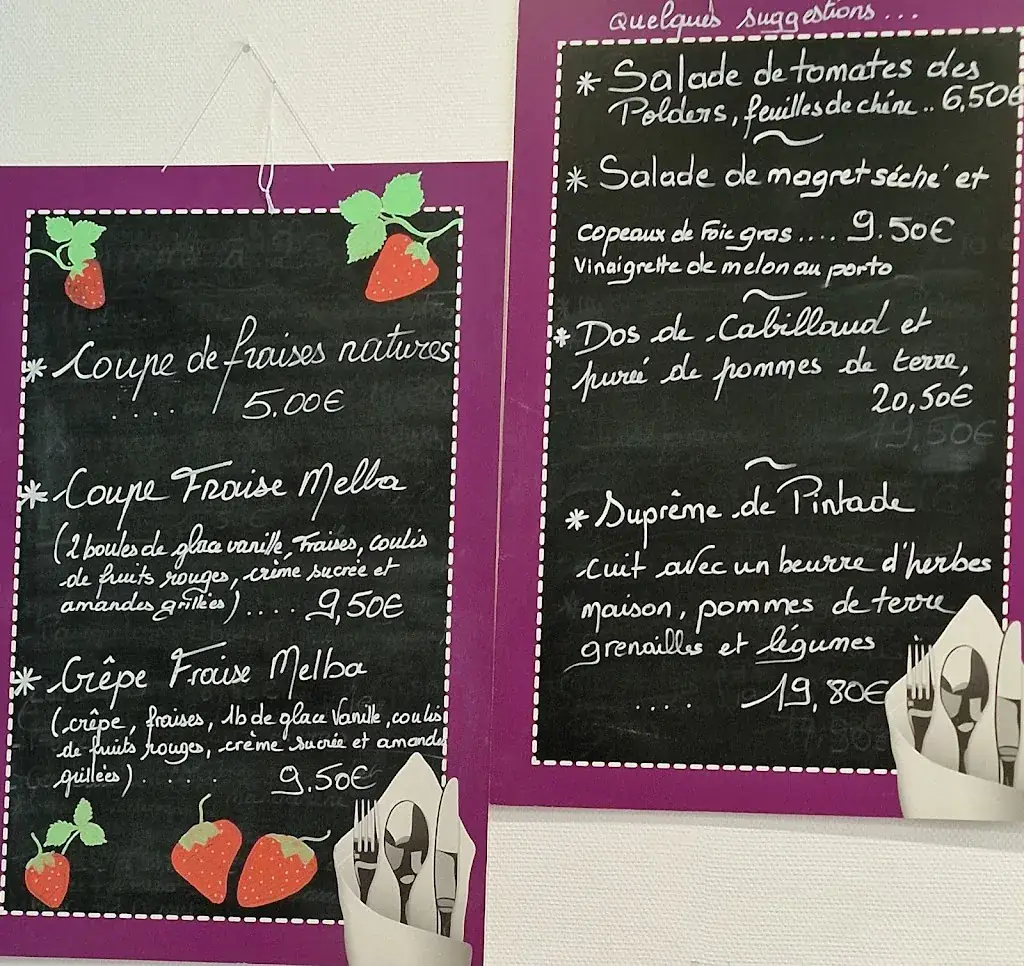 * Coupe de fraises natures
.... 5.00€
* Coupe Fraise Melba
(2 boules de glace vanille, fraises, coulis
de fruits rouges, crème sucrée et
amandes grillées).... 9,50€
* Crêpe Fraise Melba
(crêpe, fraises, 1b de glace Vanille, coulis
de fruits rouges, crème sucrée et amandes
grillées)...... 9.50€
Quelques suggestions...
* Salade de tomates des
Polders, feuilles de chêne.. 6,50€
~
* Salade de magret séché et
copeaux de Foie gras.... 9.50€
Vinaigrette de melon au porto
~
* Dos de Cabillaud et
purée de pommes de terre,
20,50€
19,50€
~
* Suprême de Pintade
cuit avec un beurre d'herbes
maison, pommes de terre
grenailles et légumes
..... 19,80€